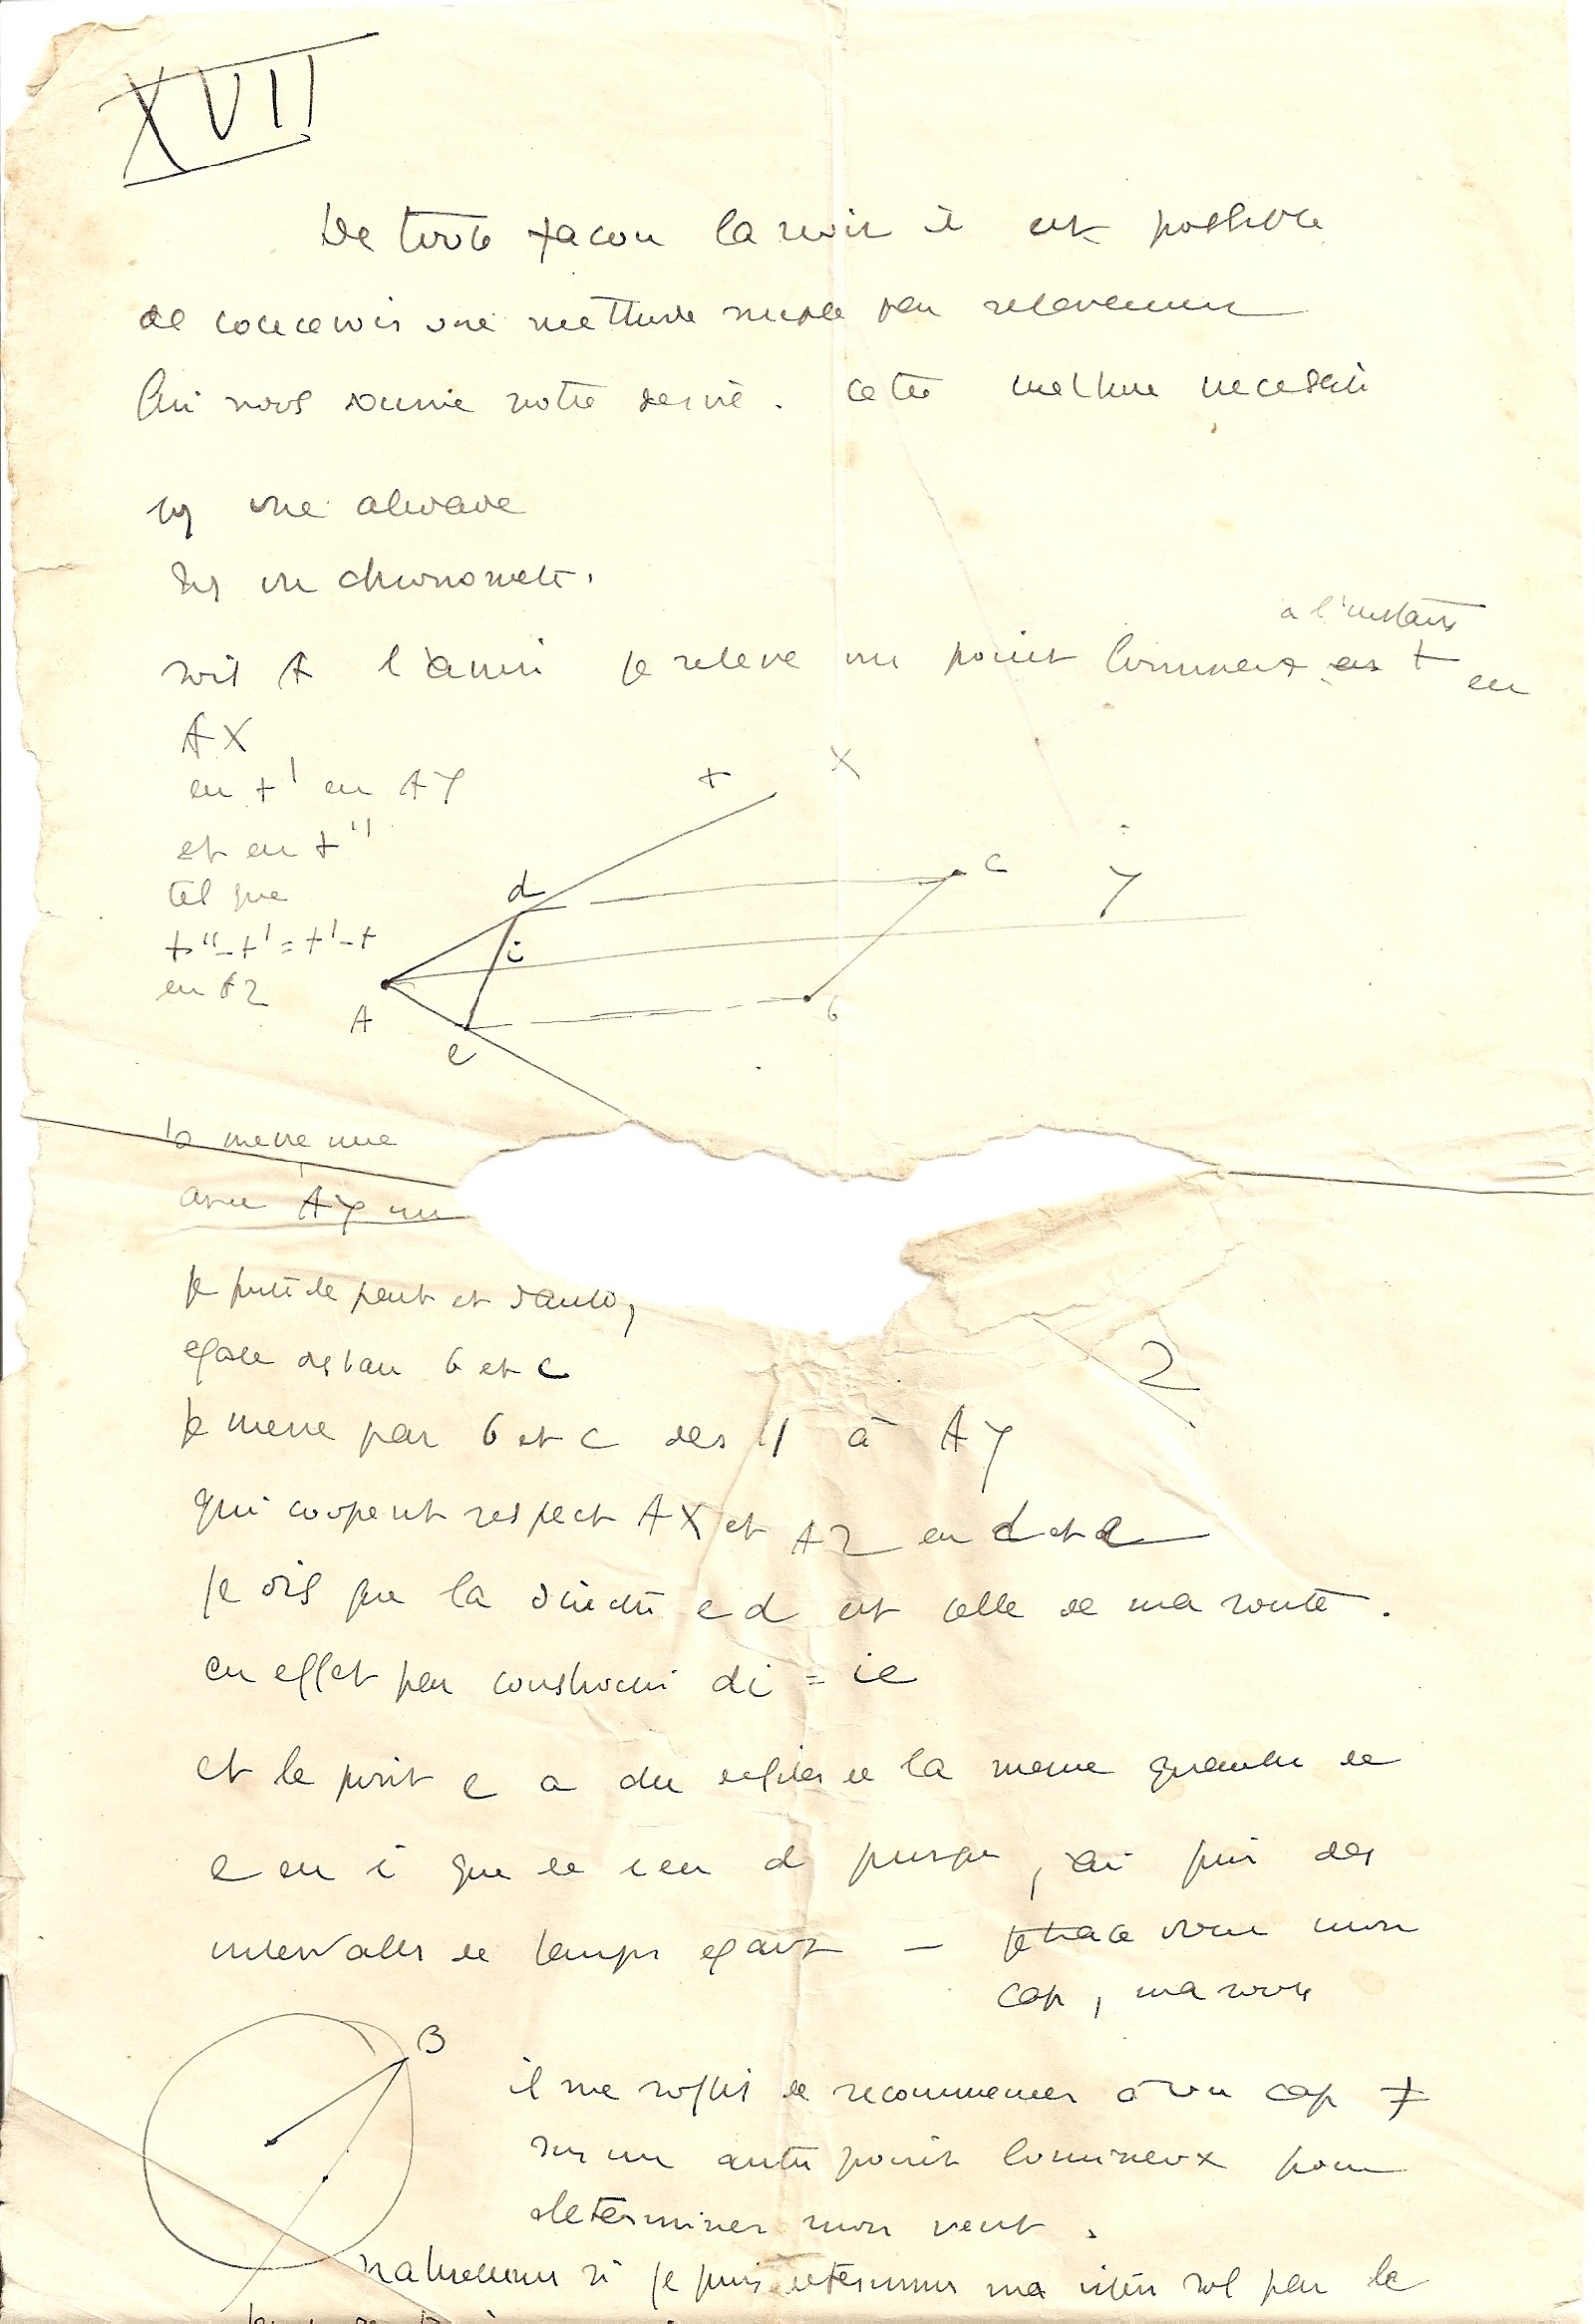 XVII
De toute façon la nuit il est possible
de concevoir une methode par relevement
Qui nous donne notre derive. cette methode necessite
une alidade
un chronometre.
soit A l'avion je releve un point lumineux a l'instant t en
AX
en t' en AY
et en t"
tel que
t"-t'=t'-t
en AZ
t X
d c Y
i
A b
e
je mene une
avec AY un
je porte de part et d'autre,
egale distance b et c
Z
je mene par b et c des // à AY
qui coupent respect AX et AZ en d et e
je dis que la direction ed est celle de ma route.
en effet par construction di = ie
et le point a du defiler de la meme quantite de
e en i que de i en d puisque j'ai pris des
intervalles de temps egaux — je trace donc mon
cap, ma route
B
il me suffit de recommencer à un cap ≠
sur un autre point lumineux pour
determiner mon vent.
naturellement si je puis determiner ma vitesse sol par le